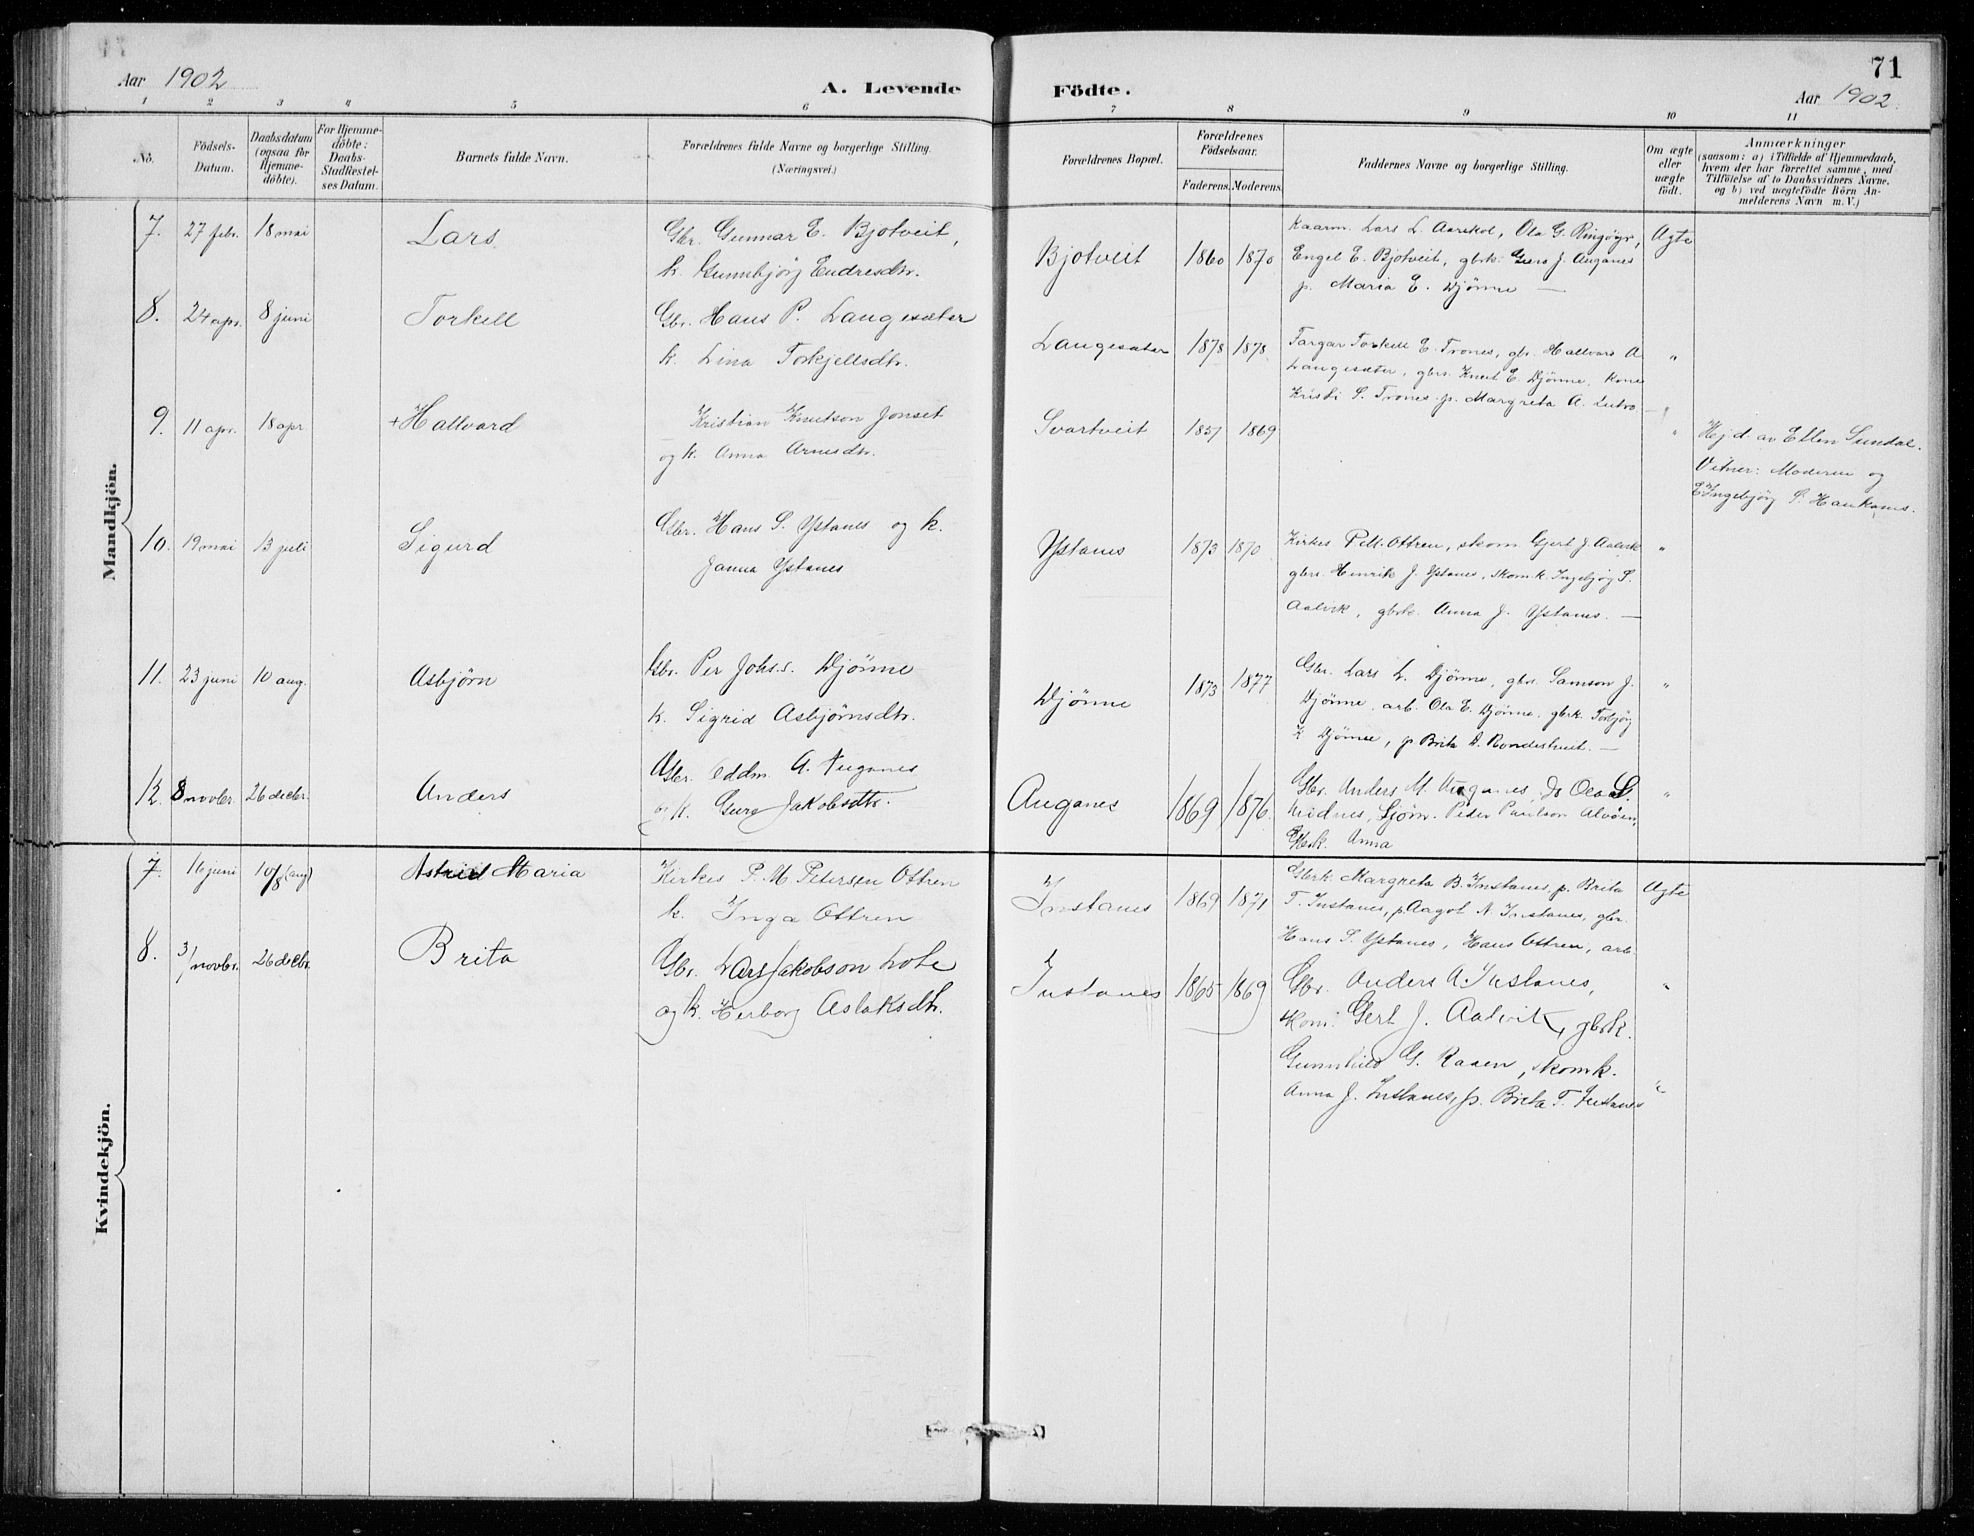 71
Aar 1902
A. Levende
Födte.
Aar 1902
1 2 3 4 5 6 7 8 9 10 11
No.
Födsels-
Datum.
Daabsdatum
(ogsaa for
Hjemme-
döbte).
For Hjemme-
döbte:
Daabs-
Stadfæstel-
ses Datum.
Barnets fulde Navn.
Forældrenes fulde Navne og borgerlige Stilling.
(Næringsvei.)
Forældrenes Bopæl.
Forældrenes
Födselsaar.
Faderens. Moderens.
Faddernes Navne og borgerlige Stilling.
Om ægte
eller
uægte
født.
Anmærkninger
(saasom: a) i Tilfælde af Hjemmedaab,
hvem der har forrettet samme, med
Tilföielse af to Daabsvidners Navne,
og b) ved uægtefödte Börn An-
melderens Navn m. V.)
Mandkjön.
7. 27 febr. 18 mai
Lars
Gbr. Gunnar E. Bjotveit,
k. Gunnbjörg Endresdtr.
Bjotveit 1860 1870
Kaarm. Lars L. Aarekol, Ola G. Ringöyr,
Engel E. Bjotveit, gbrk. Guro J. Auganes
p. Maria E. Djönne —
Ægte
8. 24 apr. 8 juni
Torkell
Gbr. Hans P. Langesæter
k. Lina Torkjellsdtr.
Langesæter 1878 1878.
Fargar Torkell E. Trones, gbr. Hallvard A.
Langesæter, gbrs. Knut E. Djönne, Kone
Kristi S. Trones p. Margreta A. Lutro —
"
9. 11 apr. 18 apr.
+ Hallvard
Kristian Knutson Jonset
og k. Anna Arnesdtr.
Svartveit 1857 1869
"
Hj.d. av Ellen Sundal.
Vitner: Moderen og
Ingebjörg S. Haukanes.
10. 19 mai 13 juli
Sigurd
Gbr. Hans S. Ystanes og k.
Janna Ystanes
Ystanes 1873 1870
Kirkes. P. M. Ottren, skom. Gjert J. Aalvik
gbrs. Henrik J. Ystanes, skomk. Ingebjög S.
Aalvik, gbrk. Anna J. Ystanes. —
"
11. 23 juni 10 aug.
Asbjörn
Gbr. Per Johs.s. Djönne
k. Sigrid Asbjörnsdtr.
Djönne 1873 1877
Gbr. Lars L. Djönne, gbr. Samson J.
Djönne, arb. Ola E. Djönne, gbrk. Torbjörg
K. Djönne, p. Brita A. —
"
12. 8 novbr. 26 decbr.
Anders
Gbr. Oddm. A. Auganes
og k. Guro Jakobsdtr.
Auganes 1869 1876.
Gbr. Anders M. Auganes, do Ola L.
Midnes, Sjöm. Peder Paulson Alvöen,
Gbrk. Anna
"
Kvindekjön.
7. 16 juni 10/8 (aug)
Astrid Maria
Kirkes. P. M. Petersen Ottren
k. Inga Ottren
Instanes 1869 1871
Gbrk. Margreta B. Instanes, p. Brita
T. Instanes, p. Aagot N. Instanes, gbr.
Hans S. Ystanes, Hans Ottren, arb.
Ægte
8. 3/novbr. 26 decbr.
Brita
Gbr. Lars Jakobson Lote
og k. Herborg Aslaksdtr.
Instanes 1865 1869
Gbr. Anders A. Instanes,
skom. Gert J. Aalvik, gbrk.
Gunnhild G. Raaen, skomk.
Anna J. Instanes, p. Brita T. Instanes
"
"